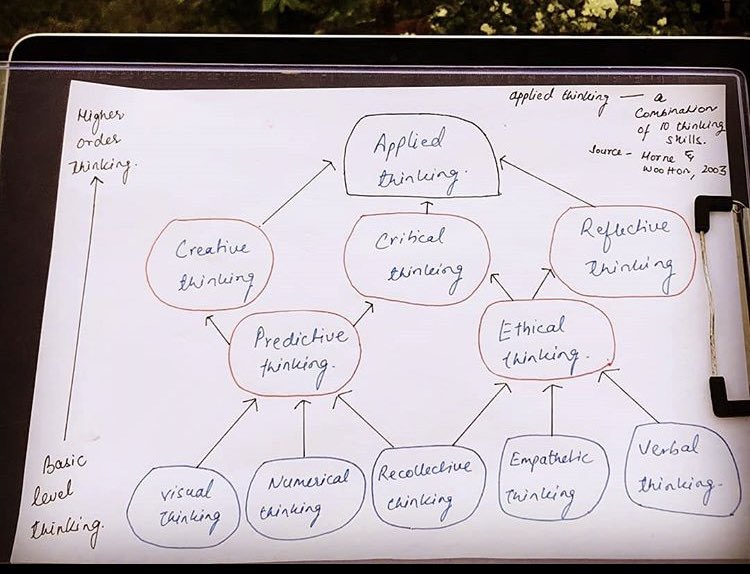 Higher
order
Thinking.
applied thinking — a
Combination
of 10 thinking
skills.
Source - Horne &
Wootton, 2003
Applied
thinking.
Creative
thinking
Critical
thinking
Reflective
Thinking
Predictive
thinking.
Ethical
thinking.
Basic
level
thinking.
Visual
Thinking
Numerical
thinking
Recollective
thinking
Empathetic
Thinking
Verbal
thinking.